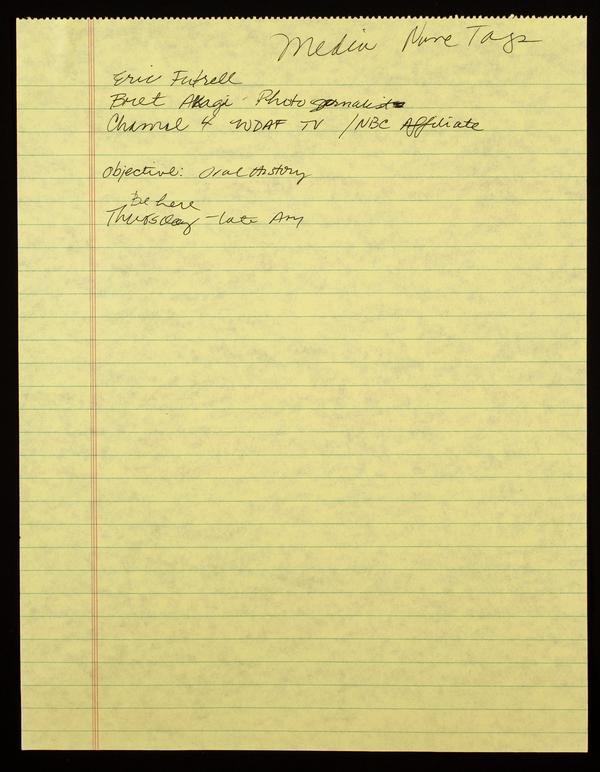 Media Name Tags
Eric Futrell
Bret Akagi - Photo jornalist
Channel 4 WDAF TV / NBC Affiliate
Objective: Oral History
Be here
Thursday - late Am